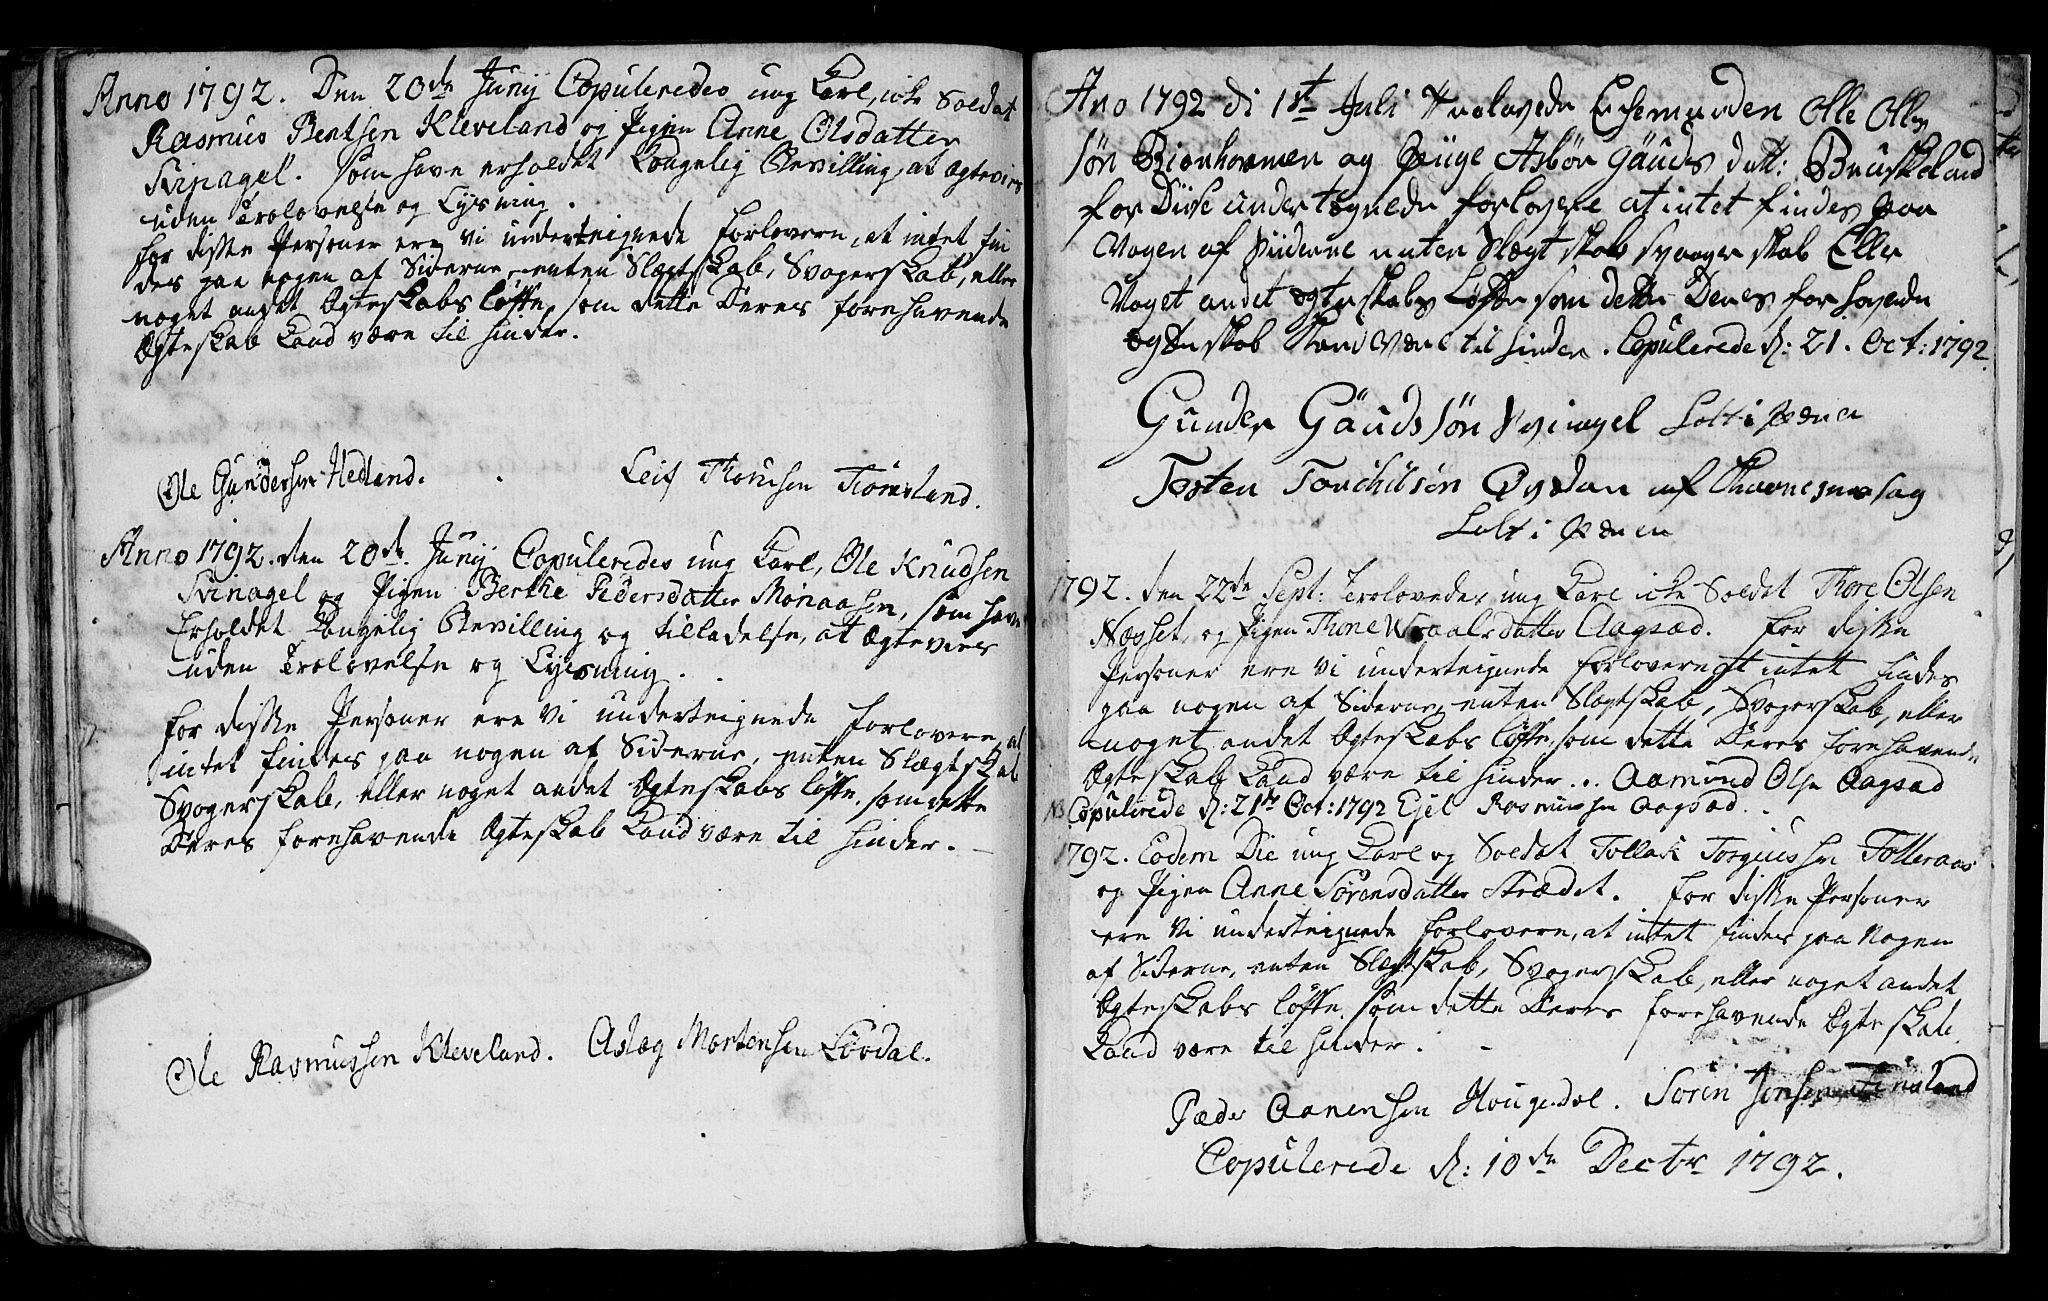 Anno 1792. Den 20de Junij Copuleredes ung Karl, icke Soldat
Rasmus Bentsen Kleveland og Pigen Anne Olsdatter
Svinagel. som have erholdet Kongelig Bevilling, at Ægtevies
uden Trolovelse og Lysning.
for disse Personer ere vi underteignede forlovere, at intet fin
des paa nogen af Siderne, enten Slægtskab, Svogerskab, eller
noget andet Ægteskabs løfte, som dette Deres forehavende
Ægteskab Kand være til hinder.
Ole Gundersen Hedland. Leif Thorsen Tiomsland.
Anno 1792. den 20de Junij Copuleredes ung Karl, Ole Knudsen
Svinagel og Pigen Berthe Pedersdatter Monaasen, som have
Erholdet Kongelig Bevilling og tilladelse, at Ægtevies
uden Trolovelse og Lysning.
for disse Personer ere Vi underteignede forlovere, at
intet findes paa nogen af Siderne, enten Slægtskab
Svogerskab, eller noget andet Ægteskabs løfte, som dette
Deres forehavende Ægteskab Kand være til hinder.
Ole Rasmussen Kleveland. Aslag Mortensen Løvdal.
Ano 1792 di 1st Juli Trolovede Olle Olle
søn og Piige Asbør Gäuds datt: Bruskeland
for Disse undertegnede forlovere at intet findes paa
Nogen af Siiderne enten Slægt skab svoger skab Eller
Noget andet egteskabs Løfte som dette Deres for havede
egteskab Kand være til hinder. Copulerede d: 21. Oct: 1792.
Gunder Gäudssøn Svinagel
Testen af
1792. den 22de Sept: Troloveder ung Karl icke Soldat Thore Olsen
Næsset, og Pigen Thone Wraalsdatter Aagsæd. for disse
Personer ere vi underteignede forlovere at intet findes
paa nogen af Siderne, enten Slægtskab, Svogerskab, eller
noget andet Ægteskabs løfte, som dette Deres forehavende
Ægteskab Kand være til hinder... Aamund Olsen Aagsad
NB Copulerede d: 21de Oct: 1792 Ejel Rasmussen Aagsad.
1792. Eodem Die ung Karl og Soldat Tollak Torgiussen Folleraas
og Pigen Anne Sörensdatter Strædet. for disse Personer
ere Vi underteignede forlovere, at intet findes paa Nogen
af Siderne, enten Slægtskab, Svogerskab, eller noget andet
Ægteskabs løfte, som dette Deres forehavende Ægteskab
Kand være til hinder.
Pæder Aanensen Hougendal. Sören Jensen Finsland
Copulerede d: 10de Dectbr 1792.